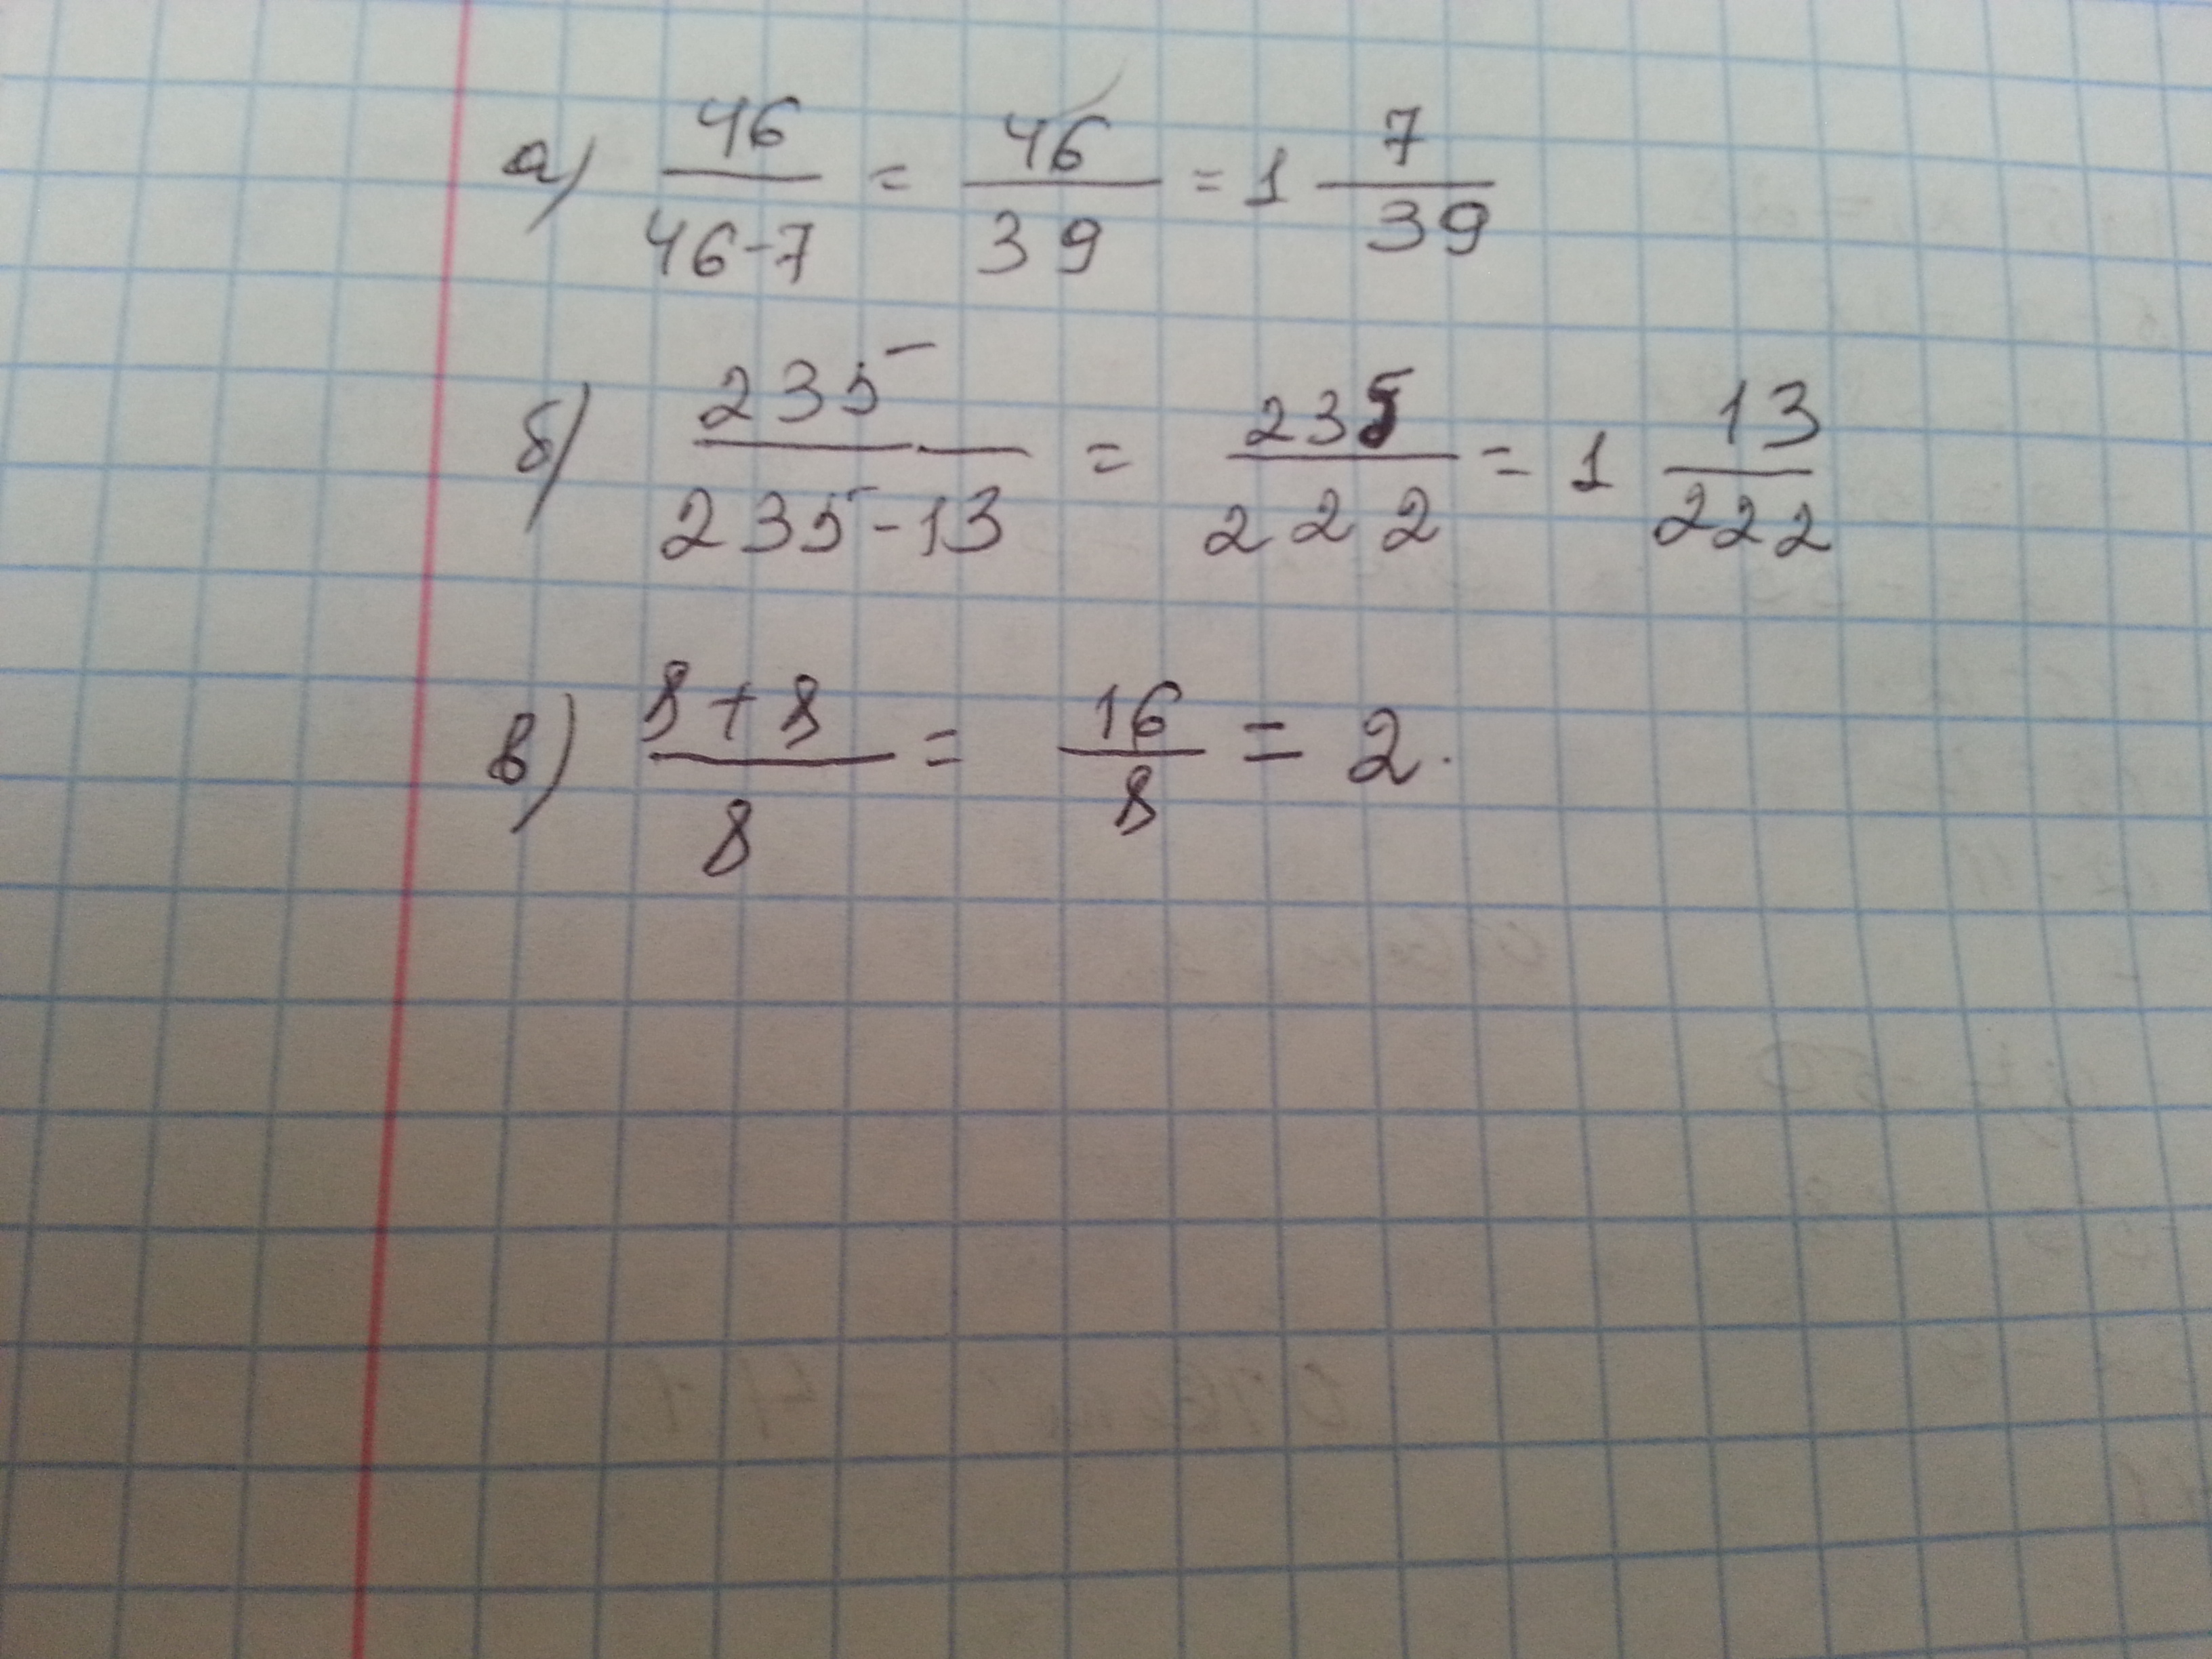 а) 46/46-7 = 46/39 = 1 7/39
б) 235/235-13 = 235/222 = 1 13/222
в) 8+8/8 = 16/8 = 2.